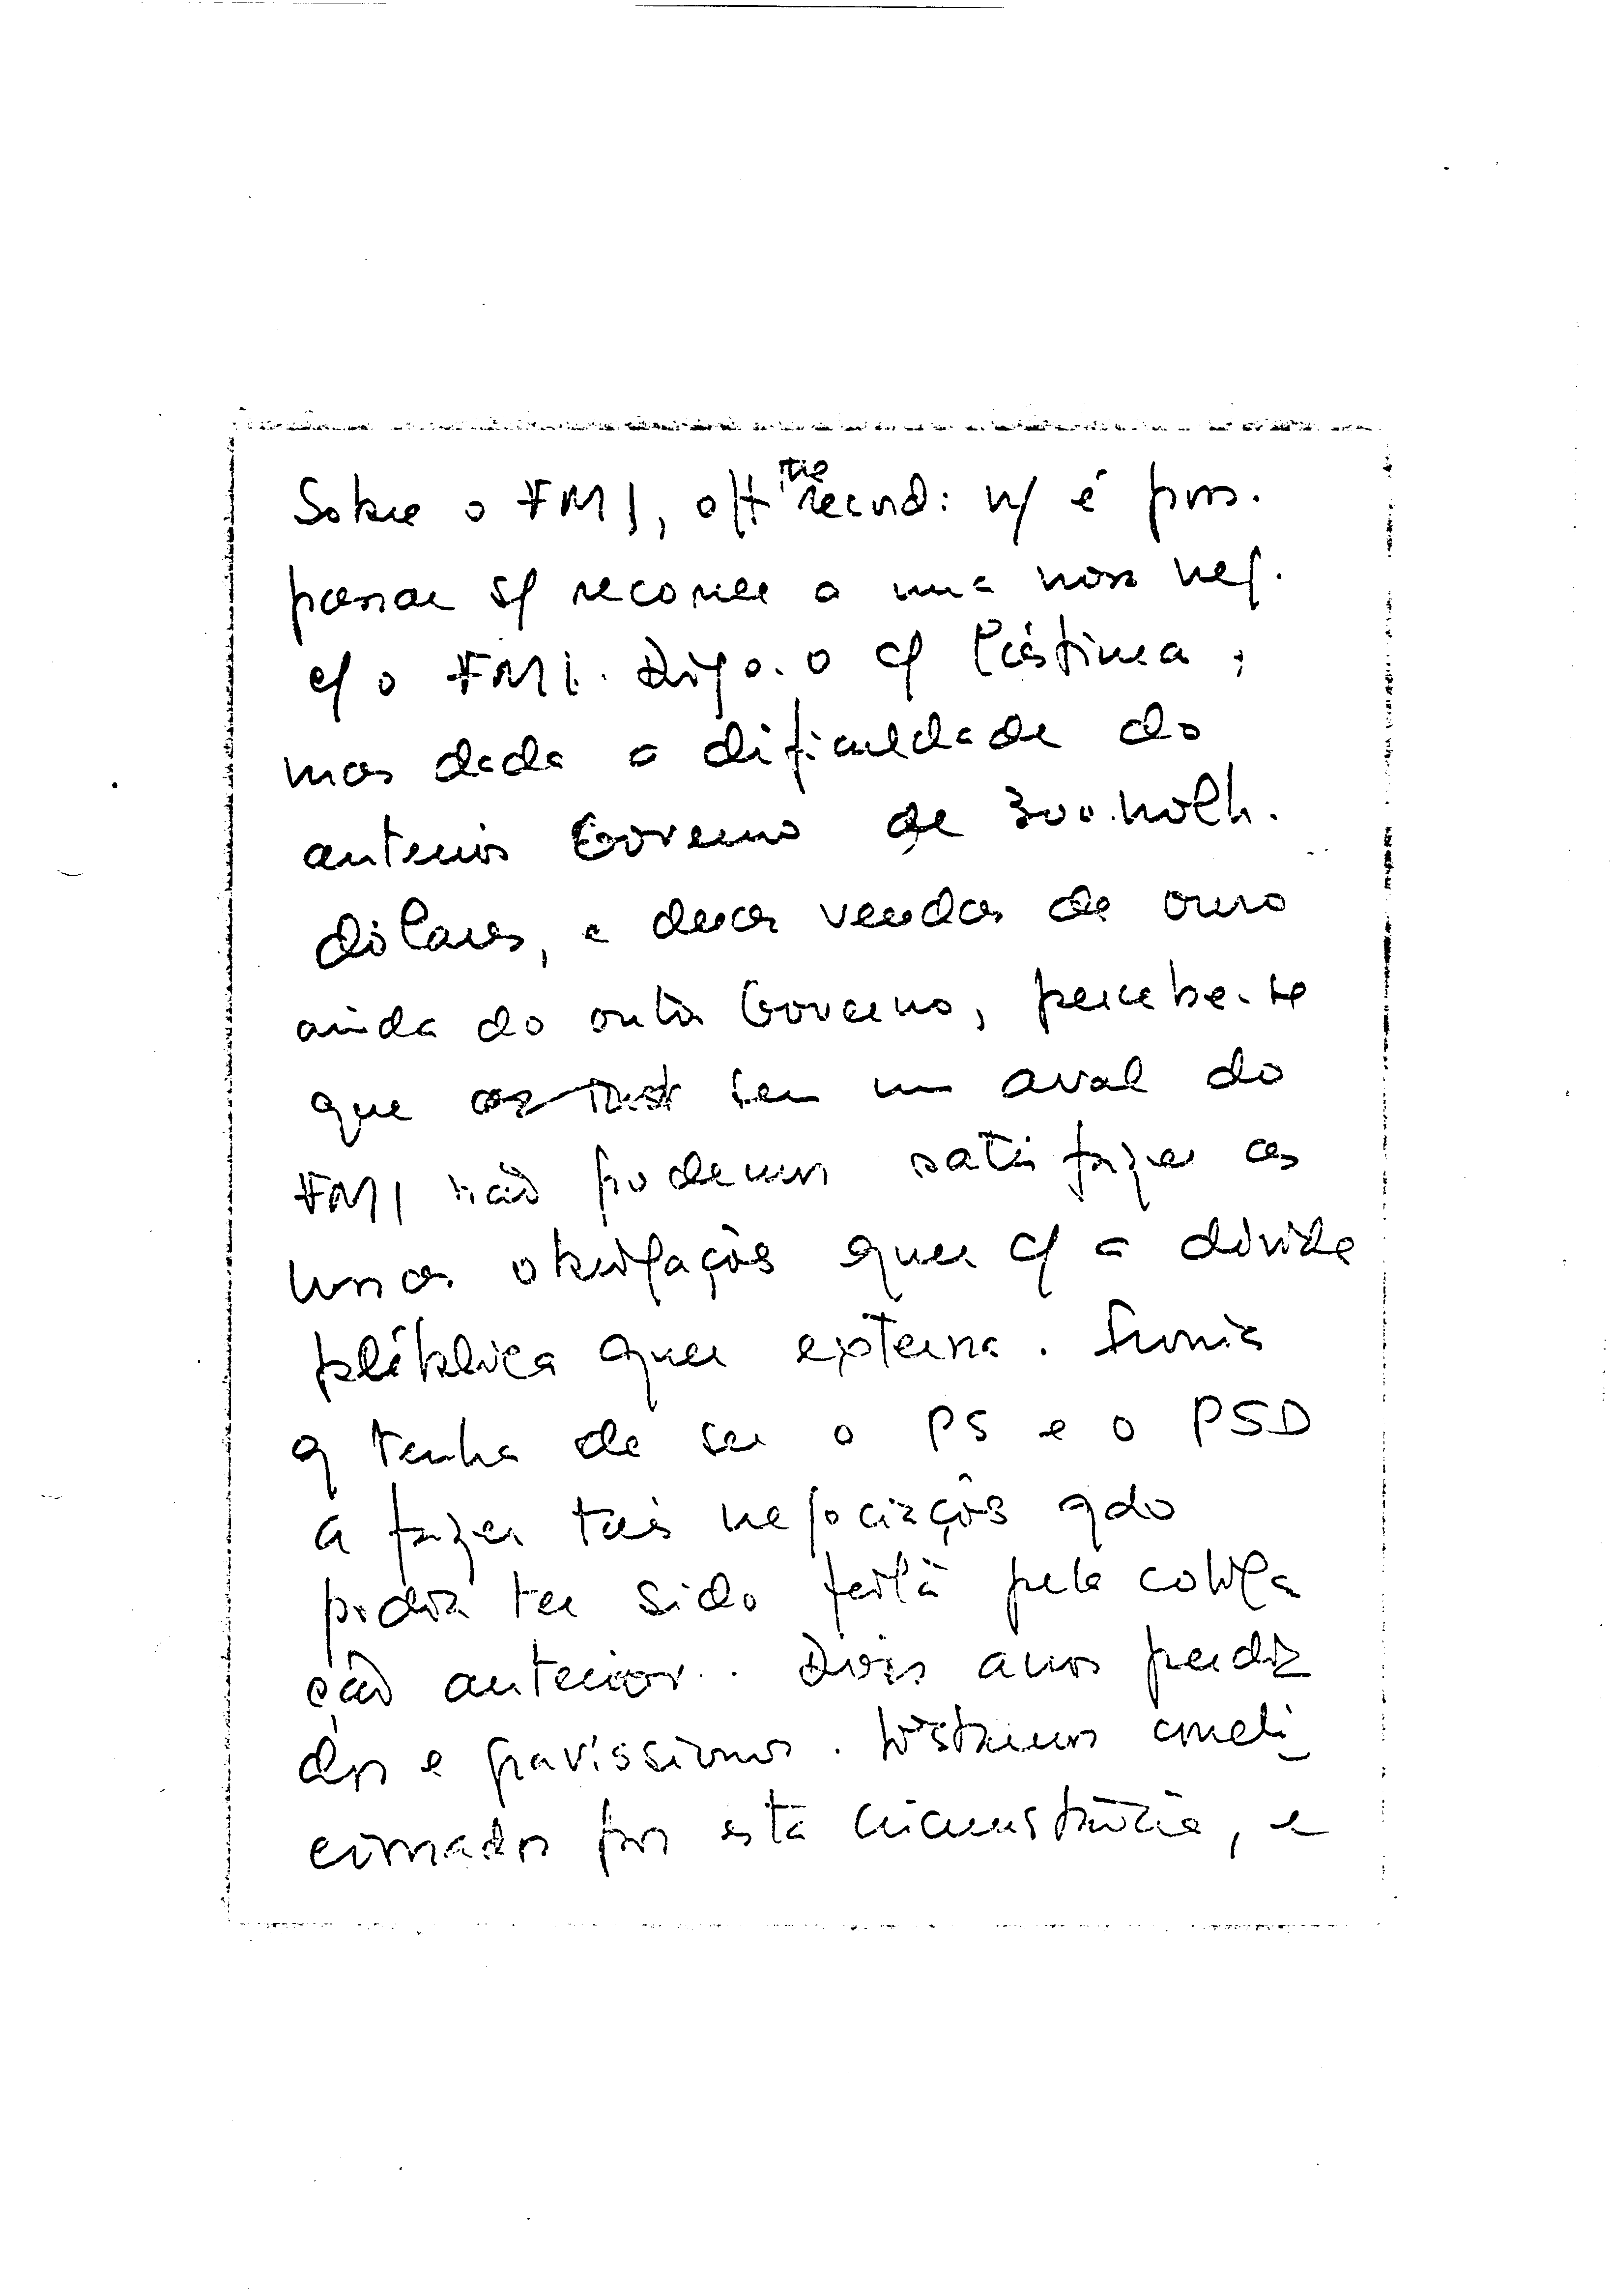 Sobre o FMI, off the record: n/ é poss.
passar s/ recorrer a uma nova neg.
c/ o FMI. Digo-o c/ lástima,
mas dada a dificuldade do
anterior Governo de 300 milh.
dólares, e duas vendas de ouro
ainda do outro Governo, percebe-se
que sem um aval do
FMI não podemos satisfazer as
nossas obrigações quer c/ a dívida
pública quer externa. Ironia
q tenha de ser o PS e o PSD
a fazer tais negociações qdo
podia ter sido feita pela coliga
ção anterior. Dois anos perdi
dos e gravíssimos. condi
cionados por esta circunstância, e